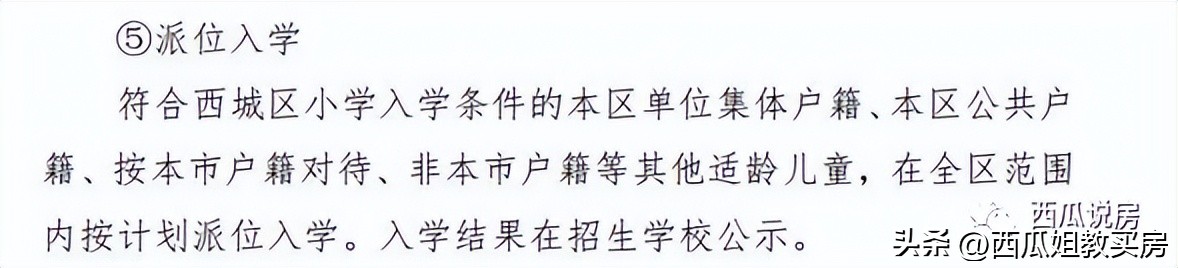 ⑤派位入学
符合西城区小学入学条件的本区单位集体户籍、本区公共户
籍、按本市户籍对待、非本市户籍等其他适龄儿童，在全区范围
内按计划派位入学。入学结果在招生学校公示。
西瓜说房
头条 @西瓜姐教买房